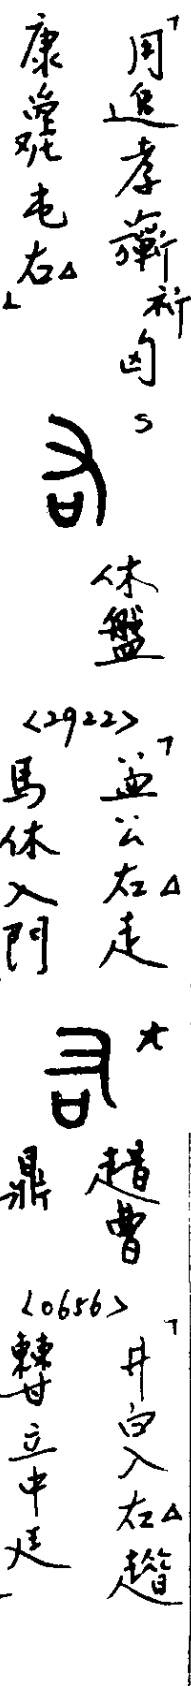 「用追孝祈匄
康屯右△」
S
休盤
<2922>
「益公右△走
馬休入門
大
趞曹
鼎
<0656>
「井白入右△趞
立中廷